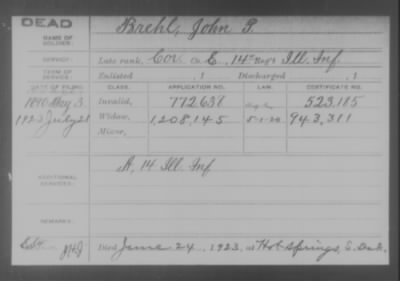 DEAD
NAME OF SOLDIER: Brehl, John P.
SERVICE: Late rank, Cor. Co. E, 14" Reg't Ill. Inf.
TERM OF SERVICE: Enlisted , 1 Discharged , 1
DATE OF FILING. CLASS. APPLICATION NO. LAW. CERTIFICATE NO.
1890 May 3. Invalid, 772,638 523,185
1923 July 28 Widow, 1,208,145 5-1-20 943,311
Minor,
ADDITIONAL SERVICES: A, 14 Ill. Inf.
REMARKS:
Died June 24, 1923, at Hot Springs, S. Dak.